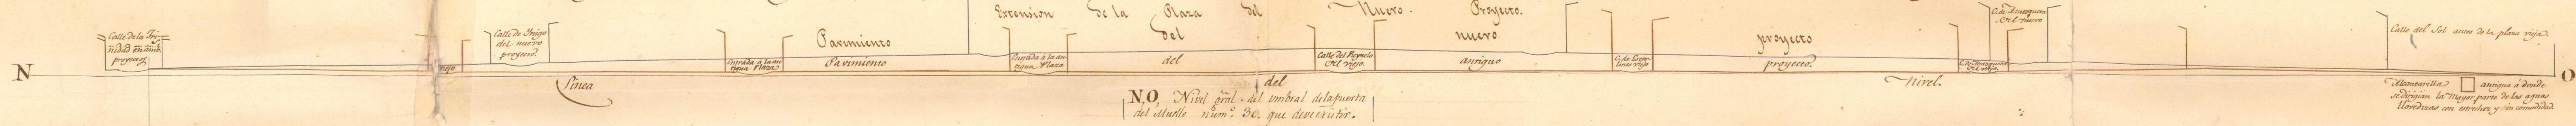 Extension de la Plaza del Nuevo Proyecto.
Calle de la Tri-
nidad en amb.
proyectos
Calle de Trigo
del nuevo
proyecto.
C. de
del nuevo
Calle del Sol antes de la plaza vieja.
Pavimiento del nuevo proyecto
viejo
Entrada a la an-
tigua Plaza
Pavimiento
Entrada a la an-
tigua Plaza
del
Calle del Repeso
del viejo.
antiguo
viejo
proyecto.
del viejo.
N
O
Linea del Nivel.
N,O, Nivel gral. del umbral de la puerta
del Muelle num.º 30. que deve existir.
Alcantarilla antigua á donde
se dirigian la Mayor parte de las aguas
llovedizas con estrechez y sin comodidad.